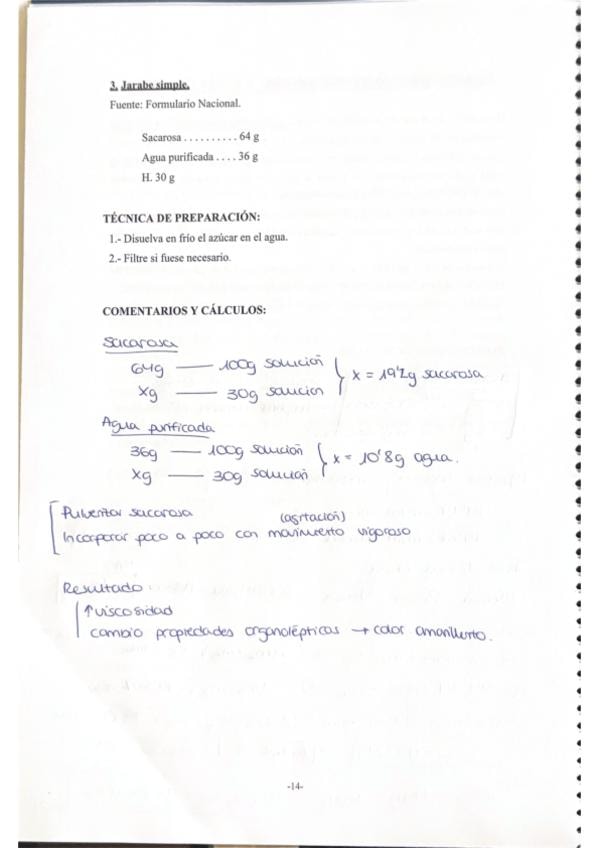 3. Jarabe simple.
Fuente: Formulario Nacional.
Sacarosa . . . . . . . . . . 64 g
Agua purificada . . . . 36 g
H. 30 g
TÉCNICA DE PREPARACIÓN:
1.- Disuelva en frío el azúcar en el agua.
2.- Filtre si fuese necesario.
COMENTARIOS Y CÁLCULOS:
Sacarosa
64g — 100g solución
xg — 30g solución } x = 19'2g sacarosa
Agua purificada
36g — 100g solución
xg — 30g solución } x = 10'8g agua.
Pulverizar sacarosa (agitación)
Incorporar poco a poco con movimiento vigoroso
Resultado:
↑viscosidad
cambio propiedades organolépticas → color amarillento.
-14-